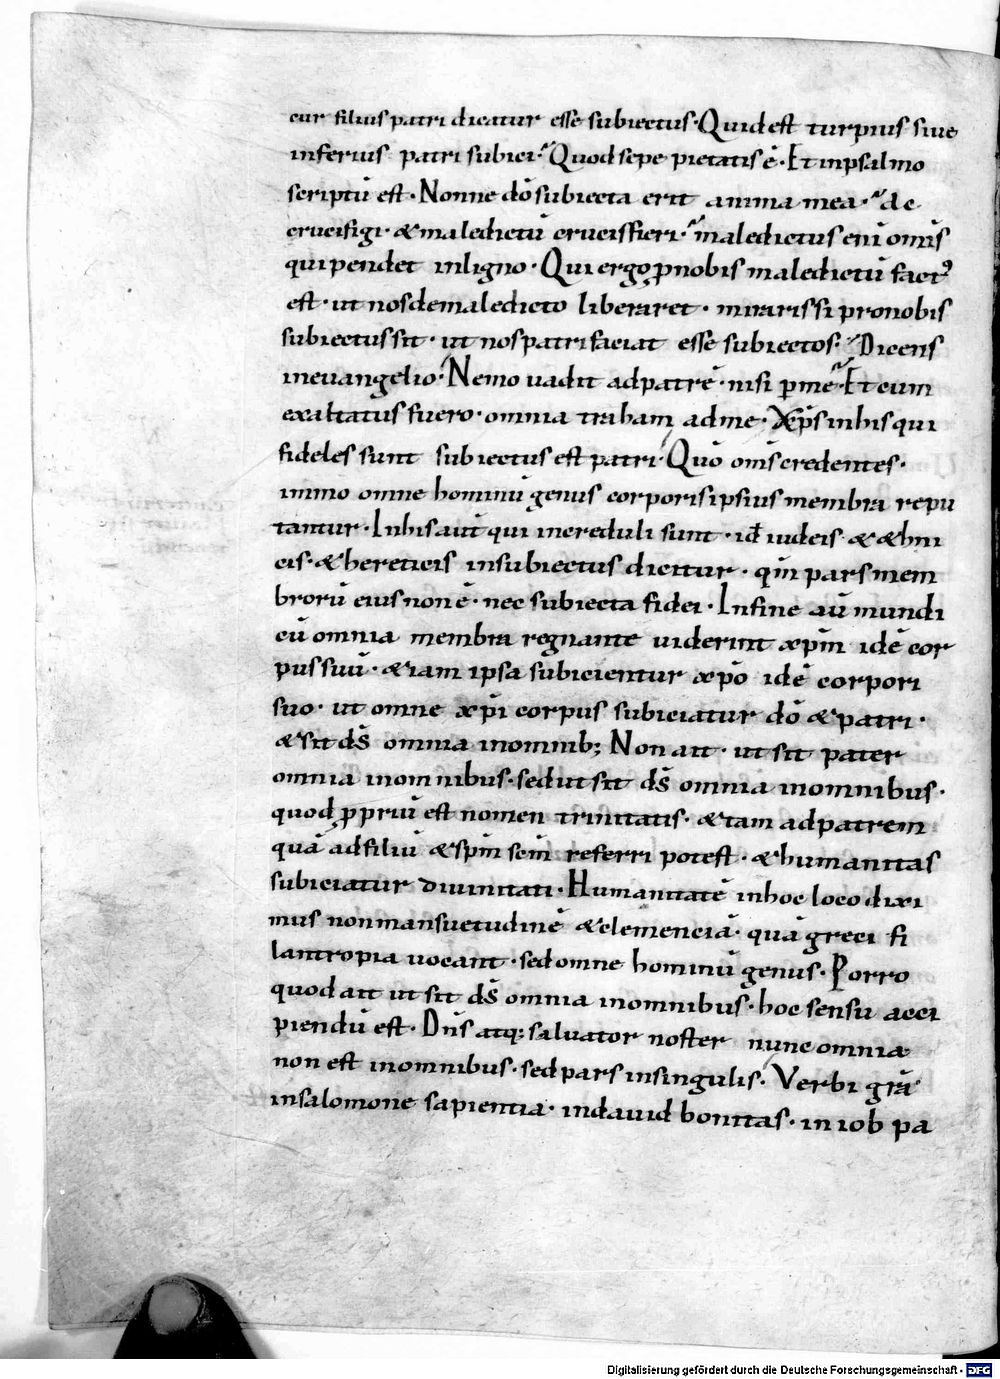 cur filius patri dicatur esse subiectus. Quid est turpius siue
inferius patri subici. Quod sepe pietatis ē. Et in psalmo
scriptū est. Nonne dō subiecta erit anima mea. ac
crucifigi. & maledictū crucis fieri. maledictus enī omīs
qui pendet inligno. Qui ergo ꝓnobis maledictū factꝰ
est. ut nos de maledicto liberaret. miraris si pro nobis
subiectus sit. ut nos patri faciat esse subiectos. Dicens
ineuangelio. Nemo uadit ad patrē. nisi p̱ mē. Et cum
exaltatus fuero. omnia traham ad me. Xp̄s inhis qui
fideles sunt subiectus est patri. Quō om̄s credentes.
immo omne hominū genus corporis ipsius membra repu
tantur. Inhis aut̄ qui increduli sunt. id̄ iudeis & &hni
cis. & hereticis insubiectus dicitur. qm̄ pars mem
brorū eius non ē. nec subiecta fidei. Infine aū mundi
cū omnia membra regnante uiderint xp̄m idē cor
pus suū. & iam ipsa subicientur xp̄o idē corpori
suo. ut omne xp̄i corpus subiciatur dō & patri.
& sit ds̄ omnia inomnib; Non ait. ut sit pater
omnia inomnibus. sed ut sit ds̄ omnia inomnibus.
quod ꝓpriū est nomen trinitatis. & tam ad patrem
quā ad filiū & sp̄m sc̄m referri potest. & humanitas
subiciatur diuinitati. Humanitatē inhoc loco dixi
mus non mansuetudinē & clemenciā. quā greci fi
lantropia uocant. sed omne hominū genus. Porro
quod ait ut sit ds̄ omnia inomnibus. hoc sensu acci
piendū est. Dn̄s atq; saluator noster nunc omnia
non est inomnibus. sed pars insingulis. Verbi grā
insalomone sapientia. indauid bonitas. in iob pa
Digitalisierung gefördert durch die Deutsche Forschungsgemeinschaft - DFG